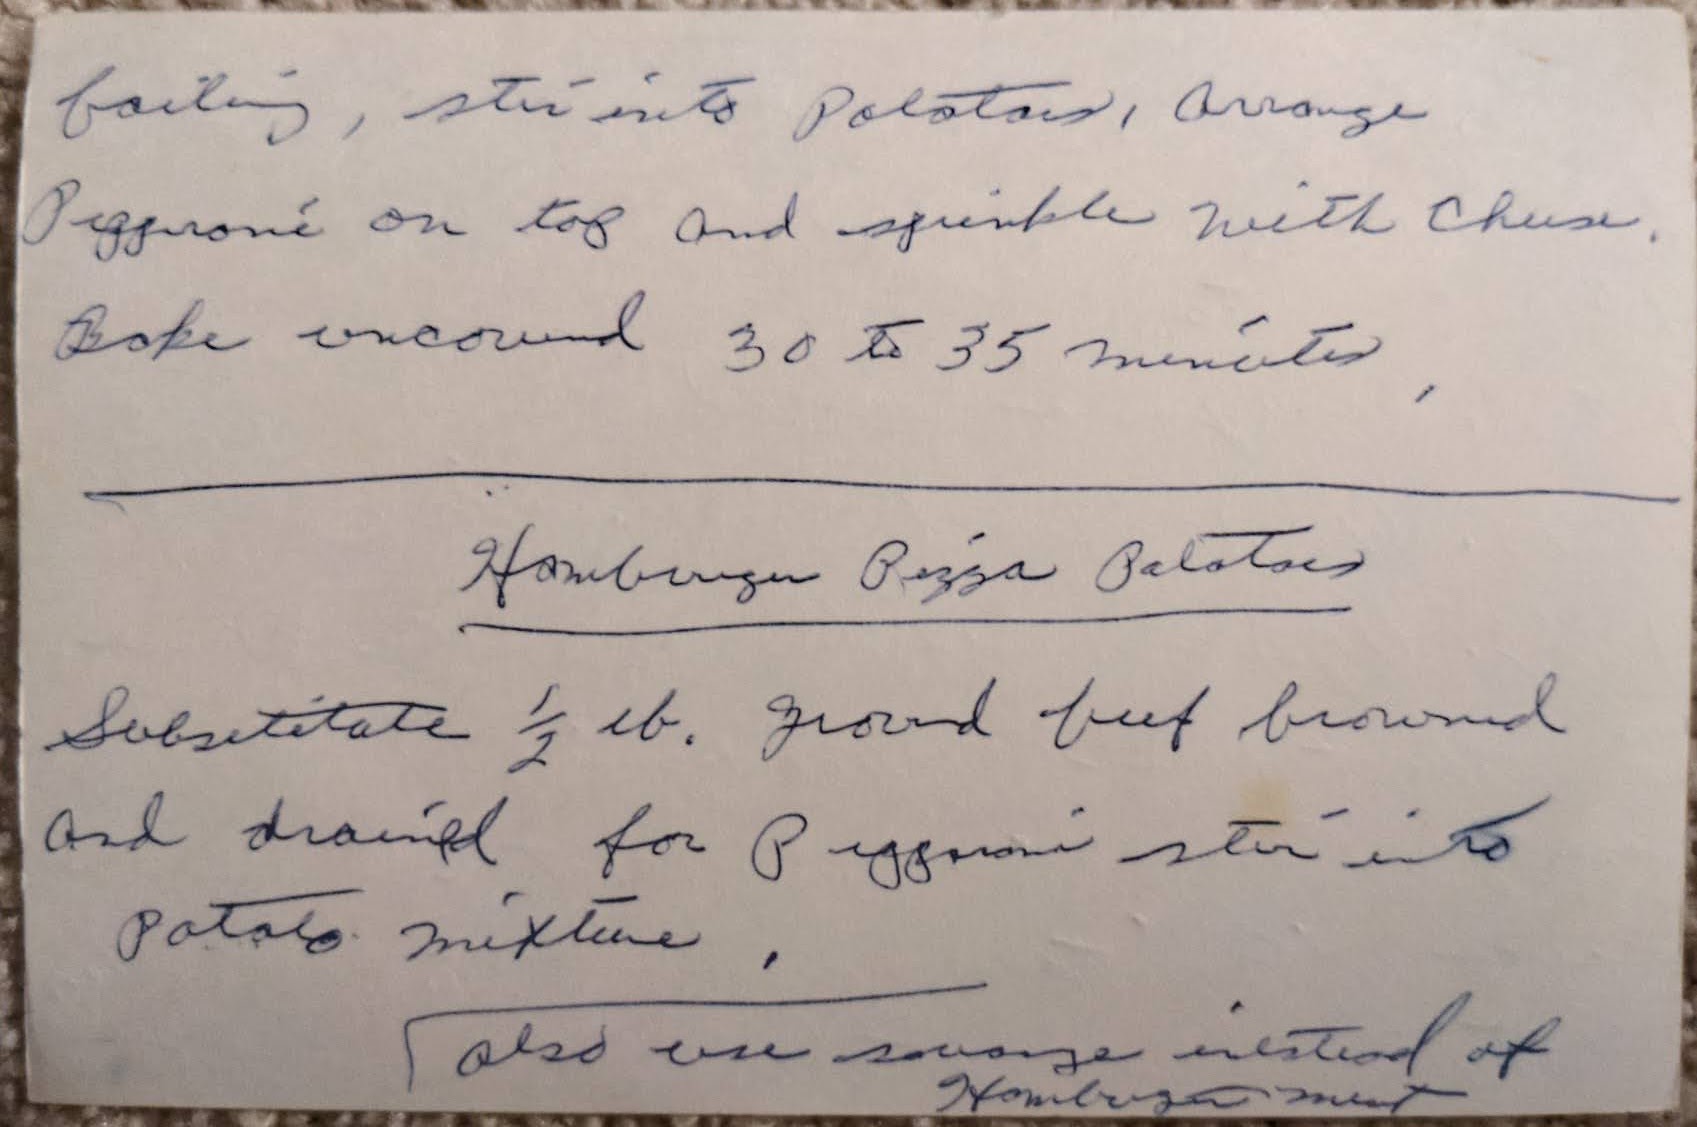 boiling, stir into Potatoes, Arrange
Pepperoni on top and sprinkle with Cheese.
Bake uncovered 30 to 35 minutes,
Hamburger Pizza Potatoes
Substitute 1/2 lb. ground beef browned
and drained for Pepperoni stir into
Potato mixture,
also use sausage instead of
Hamburger meat